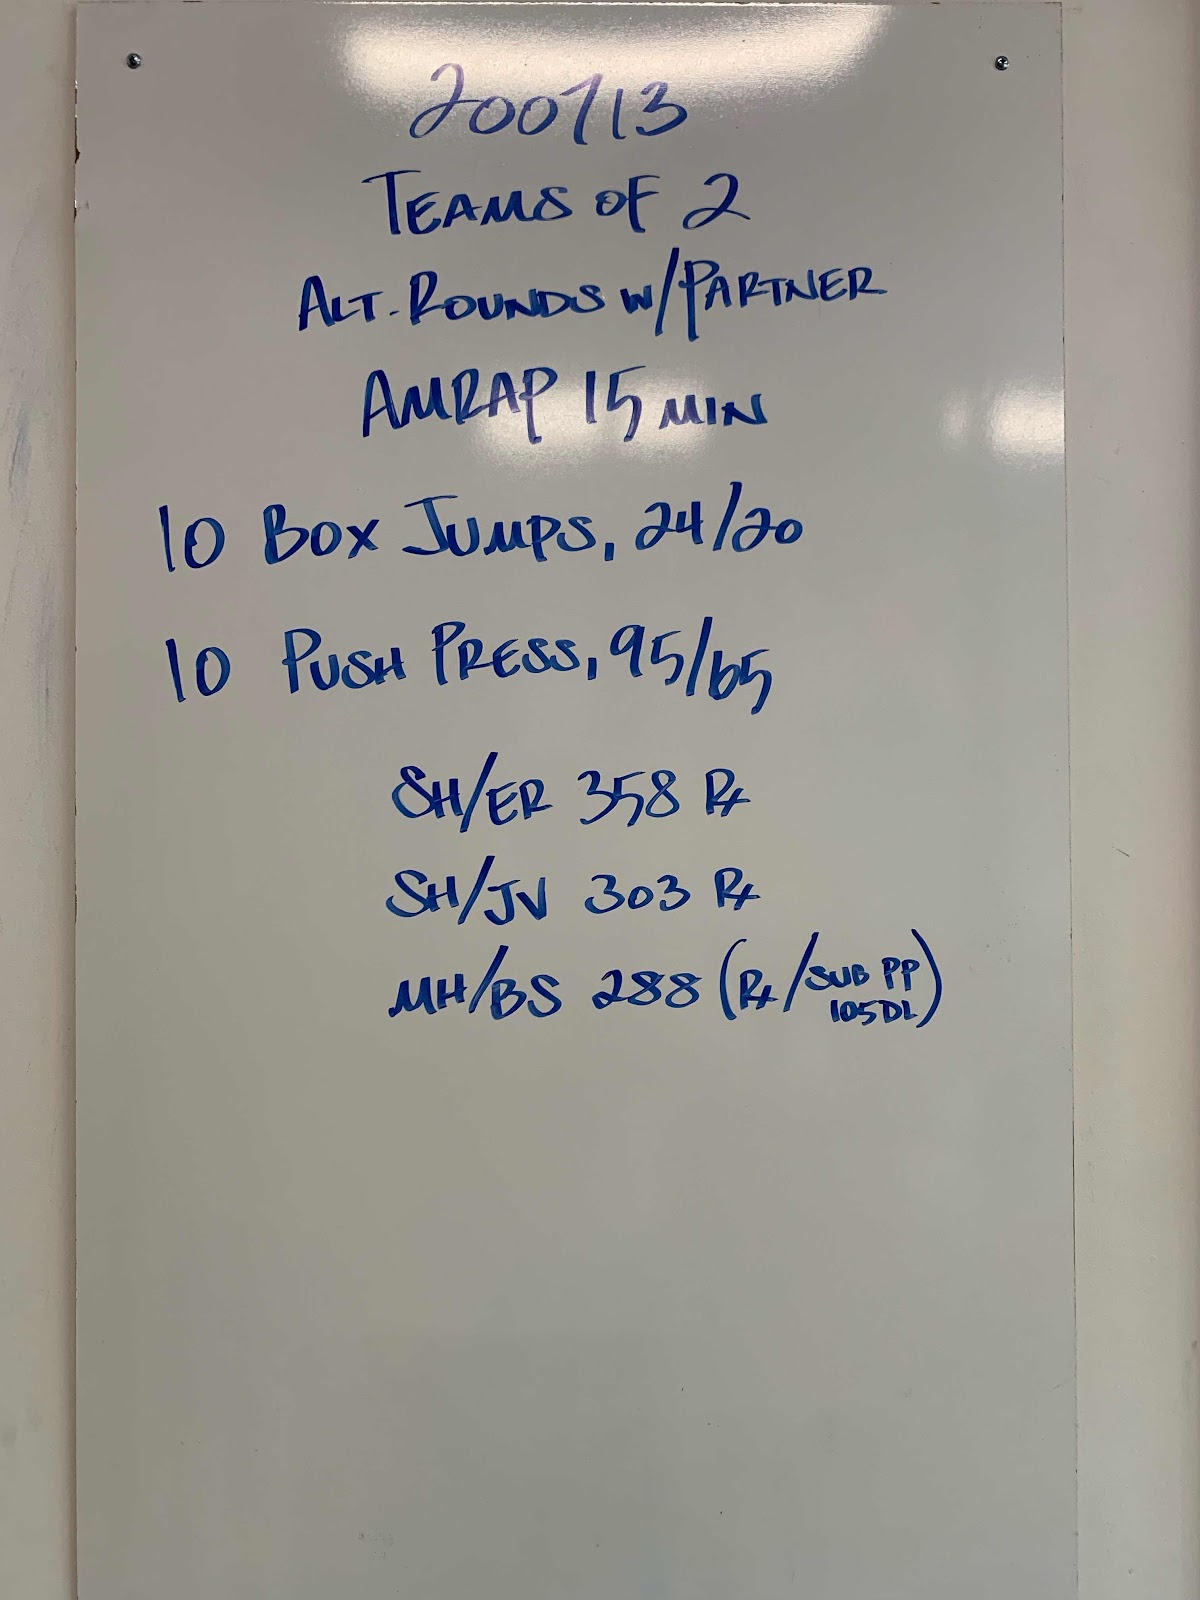 200713
TEAMS OF 2
ALT. ROUNDS W/PARTNER
AMRAP 15 MIN
10 BOX JUMPS, 24/20
10 PUSH PRESS, 95/65
SH/ER 358 Rx
SH/JV 303 Rx
MH/BS 288 (Rx/SUB PP
105DL)